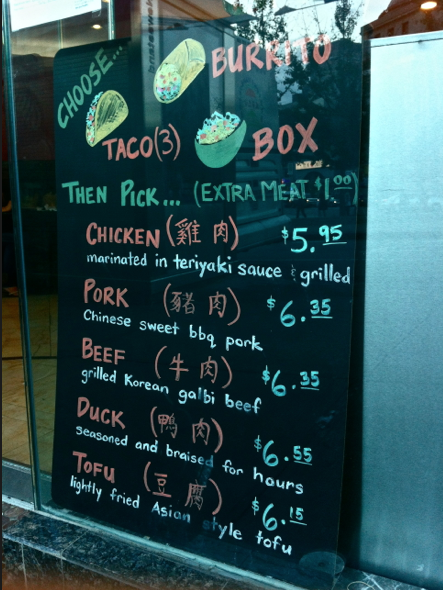 CHOOSE...
BURRITO
TACO(3)
BOX
THEN PICK... (EXTRA MEAT $1.00)
CHICKEN (雞肉) $5.95
marinated in teriyaki sauce & grilled
PORK (豬肉) $6.35
Chinese sweet bbq pork
BEEF (牛肉) $6.35
grilled Korean galbi beef
DUCK (鴨肉) $6.55
seasoned and braised for hours
TOFU (豆腐) $6.15
lightly fried Asian style tofu